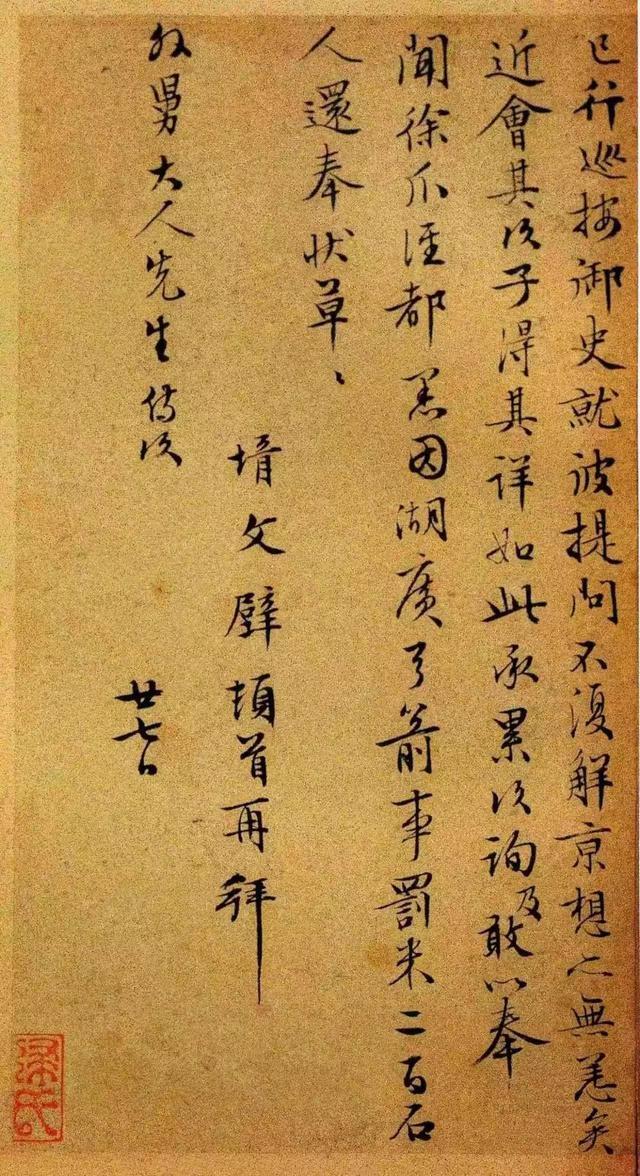 已行巡按御史就彼提問不復解京想亦無恙矣
近會其次子得其詳如此承累次詢及敢以奉
聞徐爪涇都憲因湖廣弓箭事罰米二百石
人還奉狀草〻
壻文壁頓首再拜
外舅大人先生侍次
廿七日